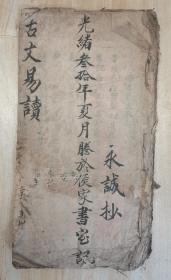 永誠抄
光緒叁拾年夏月謄於後家書室記
古文易讀